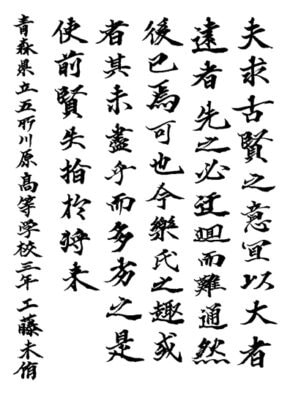 夫求古賢之意宜以大者
遠者先之必迂廻而難通然
後已焉可也今樂氏之趣或
者其未盡乎而多劣之是
使前賢失指於将来
青森県立五所川原高等学校三年 工藤未侑